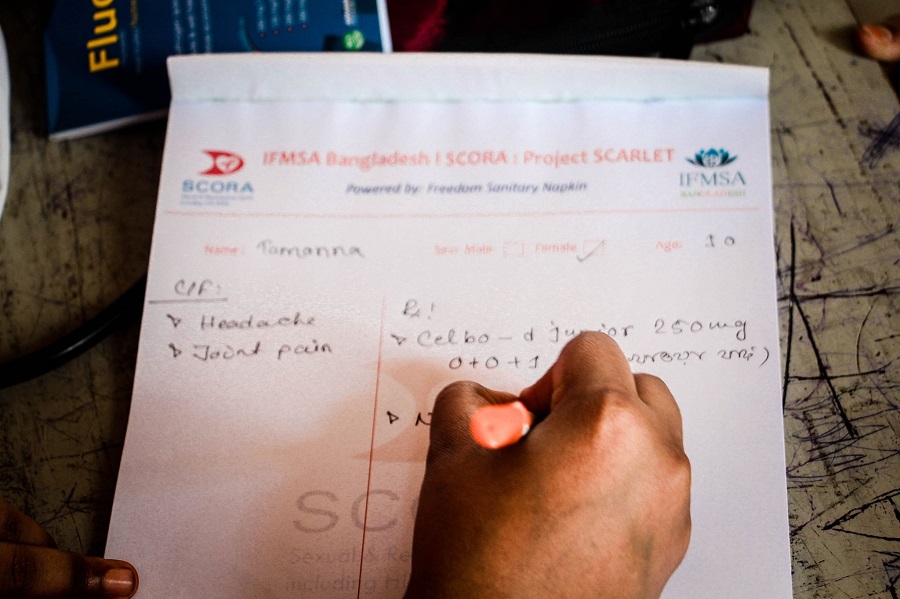 Flu
SCORA
IFMSA Bangladesh | SCORA : Project SCARLET
Powered by: Freedom Sanitary Napkin
IFMSA
BANGLADESH
Name: Tamanna Sex: Male Female ✓ Age: 10
C/F:
Headache
Joint pain
Rx:
Celbo-d junior 250mg
0+0+1
N
SC
Sexual & Re
including HI